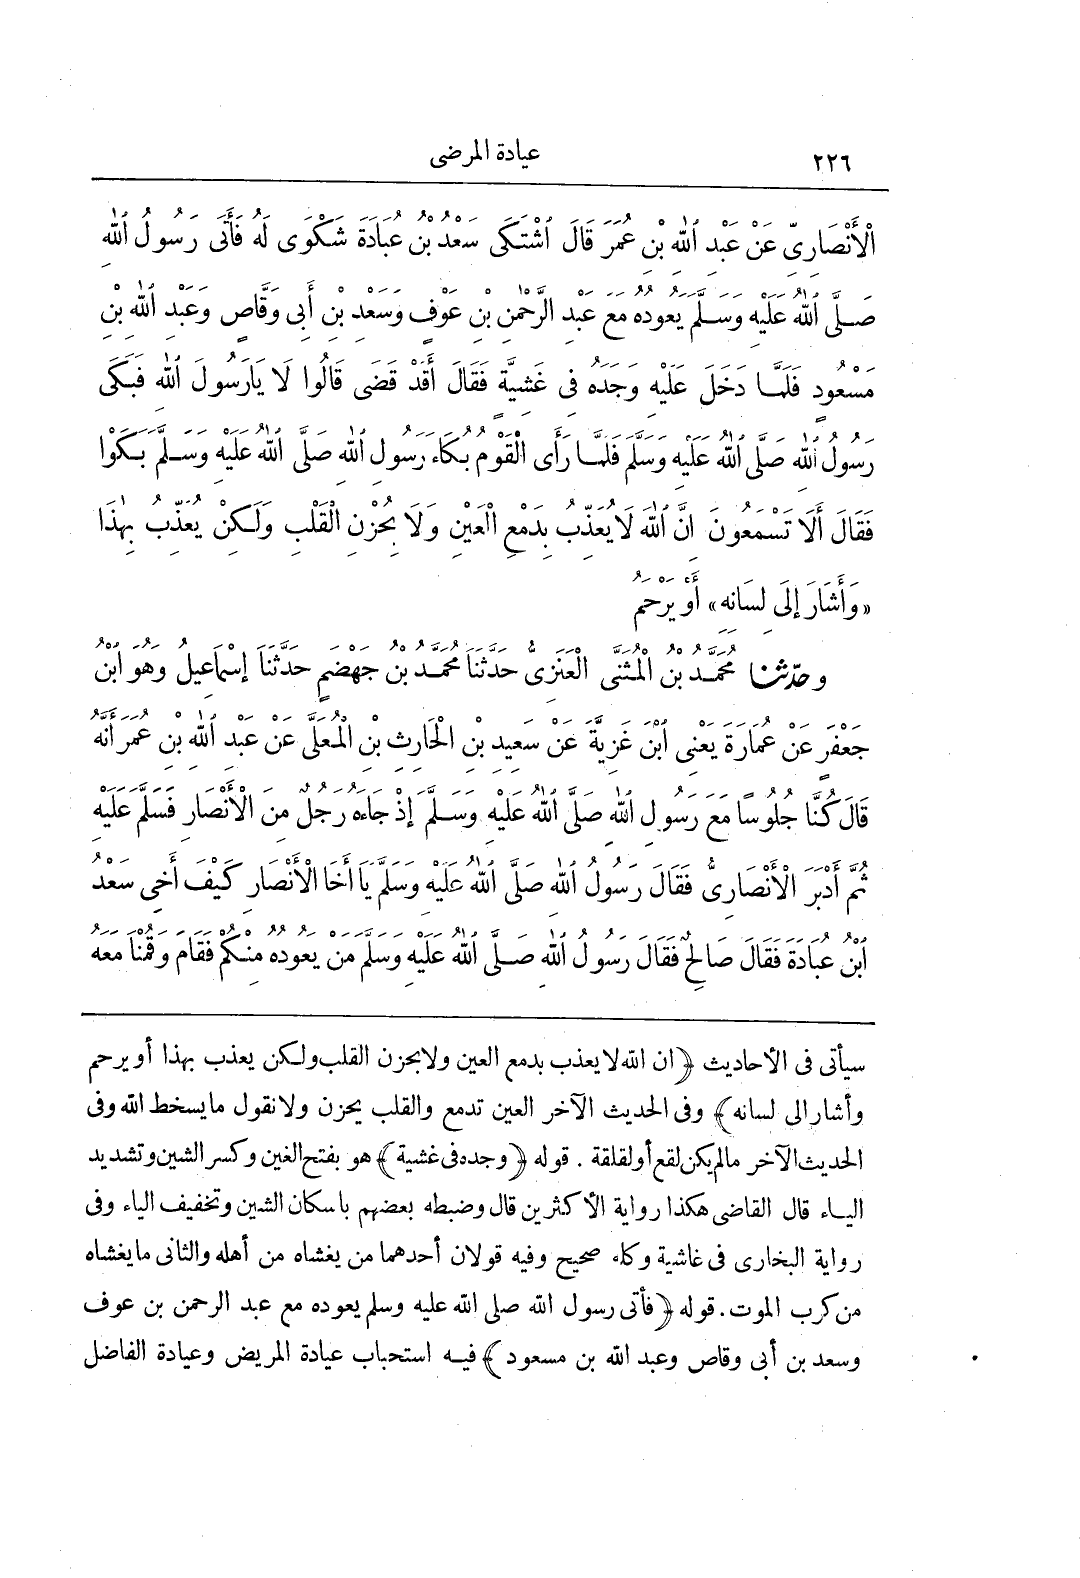 ٢٢٦ عيادة المرضى
الْأَنْصَارِيِّ عَنْ عَبْدِ اللهِ بْنِ عُمَرَ قَالَ اشْتَكَى سَعْدُ بْنُ عُبَادَةَ شَكْوَى لَهُ فَأَتَى رَسُولُ اللهِ
صَلَّى اللهُ عَلَيْهِ وَسَلَّمَ يَعُودُهُ مَعَ عَبْدِ الرَّحْمٰنِ بْنِ عَوْفٍ وَسَعْدِ بْنِ أَبِى وَقَّاصٍ وَعَبْدِ اللهِ بْنِ
مَسْعُودٍ فَلَمَّا دَخَلَ عَلَيْهِ وَجَدَهُ فِى غَشِيَّةٍ فَقَالَ أَقَدْ قَضَى قَالُوا لَا يَارَسُولَ اللهِ فَبَكَى
رَسُولُ اللهِ صَلَّى اللهُ عَلَيْهِ وَسَلَّمَ فَلَمَّا رَأَى الْقَوْمُ بُكَاءَ رَسُولِ اللهِ صَلَّى اللهُ عَلَيْهِ وَسَلَّمَ بَكَوْا
فَقَالَ أَلَا تَسْمَعُونَ إِنَّ اللهَ لَا يُعَذِّبُ بِدَمْعِ الْعَيْنِ وَلَا بِحُزْنِ الْقَلْبِ وَلَكِنْ يُعَذِّبُ بِهٰذَا
«وَأَشَارَ إِلَى لِسَانِهِ» أَوْ يَرْحَمُ
وحَدَّثَنَا مُحَمَّدُ بْنُ الْمُثَنَّى الْعَنَزِىُّ حَدَّثَنَا مُحَمَّدُ بْنُ جَهْضَمٍ حَدَّثَنَا إِسْمَاعِيلُ وَهُوَ ابْنُ
جَعْفَرٍ عَنْ عُمَارَةَ يَعْنِى ابْنَ غَزِيَّةَ عَنْ سَعِيدِ بْنِ الْحَارِثِ بْنِ الْمُعَلَّى عَنْ عَبْدِ اللهِ بْنِ عُمَرَ أَنَّهُ
قَالَ كُنَّا جُلُوسًا مَعَ رَسُولِ اللهِ صَلَّى اللهُ عَلَيْهِ وَسَلَّمَ إِذْ جَاءَهُ رَجُلٌ مِنَ الْأَنْصَارِ فَسَلَّمَ عَلَيْهِ
ثُمَّ أَدْبَرَ الْأَنْصَارِىُّ فَقَالَ رَسُولُ اللهِ صَلَّى اللهُ عَلَيْهِ وَسَلَّمَ يَا أَخَا الْأَنْصَارِ كَيْفَ أَخِى سَعْدُ
ابْنُ عُبَادَةَ فَقَالَ صَالِحٌ فَقَالَ رَسُولُ اللهِ صَلَّى اللهُ عَلَيْهِ وَسَلَّمَ مَنْ يَعُودُهُ مِنْكُمْ فَقَامَ وَقُمْنَا مَعَهُ
سيأتى فى الأحاديث ﴿ان الله لا يعذب بدمع العين ولا بحزن القلب ولكن يعذب بهذا أو يرحم
وأشار الى لسانه﴾ وفى الحديث الآخر العين تدمع والقلب يحزن ولا نقول ما يسخط الله وفى
الحديث الآخر مالم يكن لقع أو لقلقة . قوله ﴿وجده فى غشية﴾ هو بفتح الغين وكسر الشين وتشديد
الياء قال القاضى هكذا رواية الأكثرين قال وضبطه بعضهم باسكان الشين وتخفيف الياء وفى
رواية البخارى فى غاشية وكله صحيح وفيه قولان أحدهما من يغشاه من أهله والثانى ما يغشاه
من كرب الموت . قوله ﴿فأتى رسول الله صلى الله عليه وسلم يعوده مع عبد الرحمن بن عوف
وسعد بن أبى وقاص وعبد الله بن مسعود﴾ فيه استحباب عيادة المريض وعيادة الفاضل